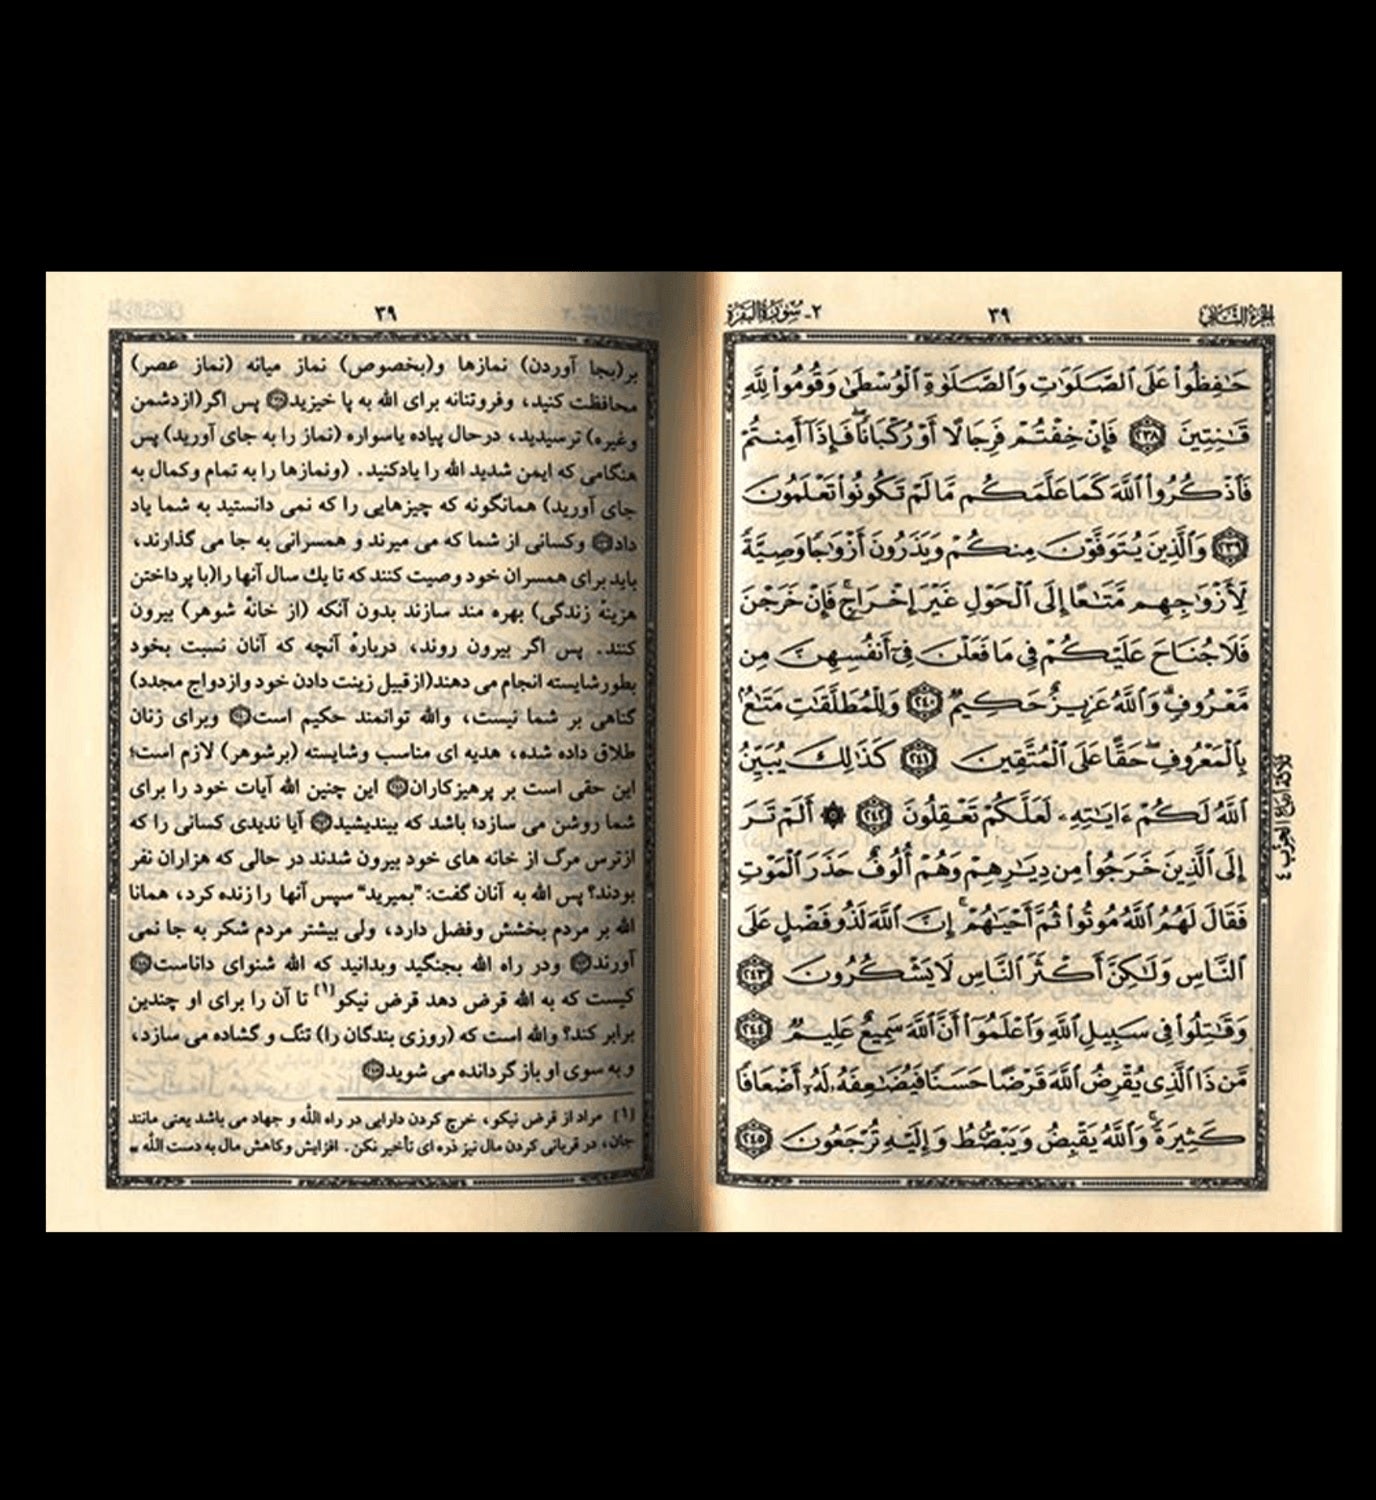 الجزء الثاني
٣٩
٢- سورة البقرة
حَٰفِظُواْ عَلَى ٱلصَّلَوَٰتِ وَٱلصَّلَوٰةِ ٱلْوُسْطَىٰ وَقُومُواْ لِلَّهِ
قَٰنِتِينَ ﴿٢٣٨﴾ فَإِنْ خِفْتُمْ فَرِجَالًا أَوْ رُكْبَانًاۖ فَإِذَآ أَمِنتُمْ
فَٱذْكُرُواْ ٱللَّهَ كَمَا عَلَّمَكُم مَّا لَمْ تَكُونُواْ تَعْلَمُونَ
﴿٢٣٩﴾ وَٱلَّذِينَ يُتَوَفَّوْنَ مِنكُمْ وَيَذَرُونَ أَزْوَٰجًا وَصِيَّةً
لِّأَزْوَٰجِهِم مَّتَٰعًا إِلَى ٱلْحَوْلِ غَيْرَ إِخْرَاجٍۚ فَإِنْ خَرَجْنَ
فَلَا جُنَاحَ عَلَيْكُمْ فِي مَا فَعَلْنَ فِىٓ أَنفُسِهِنَّ مِن
مَّعْرُوفٍۗ وَٱللَّهُ عَزِيزٌ حَكِيمٌ ﴿٢٤٠﴾ وَلِلْمُطَلَّقَٰتِ مَتَٰعٌۢ
بِٱلْمَعْرُوفِۖ حَقًّا عَلَى ٱلْمُتَّقِينَ ﴿٢٤١﴾ كَذَٰلِكَ يُبَيِّنُ
ٱللَّهُ لَكُمْ ءَايَٰتِهِۦ لَعَلَّكُمْ تَعْقِلُونَ ﴿٢٤٢﴾ ۞ أَلَمْ تَرَ
إِلَى ٱلَّذِينَ خَرَجُواْ مِن دِيَٰرِهِمْ وَهُمْ أُلُوفٌ حَذَرَ ٱلْمَوْتِ
فَقَالَ لَهُمُ ٱللَّهُ مُوتُواْ ثُمَّ أَحْيَٰهُمْۚ إِنَّ ٱللَّهَ لَذُو فَضْلٍ عَلَى
ٱلنَّاسِ وَلَٰكِنَّ أَكْثَرَ ٱلنَّاسِ لَا يَشْكُرُونَ ﴿٢٤٣﴾
وَقَٰتِلُواْ فِي سَبِيلِ ٱللَّهِ وَٱعْلَمُوٓاْ أَنَّ ٱللَّهَ سَمِيعٌ عَلِيمٌ ﴿٢٤٤﴾
مَّن ذَا ٱلَّذِي يُقْرِضُ ٱللَّهَ قَرْضًا حَسَنًا فَيُضَٰعِفَهُۥ لَهُۥٓ أَضْعَافًا
كَثِيرَةًۚ وَٱللَّهُ يَقْبِضُ وَيَبْصُۜطُ وَإِلَيْهِ تُرْجَعُونَ ﴿٢٤٥﴾
ثلاثة أرباع الحزب ٤
٣٩
بر(بجا آوردن) نمازها و(بخصوص) نماز میانه (نماز عصر)
محافظت کنید، وفروتنانه برای الله به پا خیزید پس اگر(ازدشمن
وغیره) ترسیدید، درحال پیاده یاسواره (نماز را به جای آورید) پس
هنگامی که ایمن شدید الله را یادکنید. (ونمازها را به تمام وکمال به
جای آورید) همانگونه که چیزهایی را که نمی دانستید به شما یاد
داد وکسانی از شما که می میرند و همسرانی به جا می گذارند،
باید برای همسران خود وصیت کنند که تا یك سال آنها را(با پرداختن
هزینهٔ زندگی) بهره مند سازند بدون آنکه (از خانهٔ شوهر) بیرون
کنند. پس اگر بیرون روند، دربارهٔ آنچه که آنان نسبت بخود
بطورشایسته انجام می دهند(ازقبیل زینت دادن خود وازدواج مجدد)
گناهی بر شما نیست، والله توانمند حکیم است وبرای زنان
طلاق داده شده، هدیه ای مناسب وشایسته (برشوهر) لازم است؛
این حقی است بر پرهیزکاران این چنین الله آیات خود را برای
شما روشن می سازد؛ باشد که بیندیشید آیا ندیدی کسانی را که
ازترس مرگ از خانه های خود بیرون شدند در حالی که هزاران نفر
بودند؟ پس الله به آنان گفت: "بمیرید" سپس آنها را زنده کرد، همانا
الله بر مردم بخشش وفضل دارد، ولی بیشتر مردم شکر به جا نمی
آورند ودر راه الله بجنگید وبدانید که الله شنوای داناست
کیست که به الله قرض دهد قرض نیکو[١] تا آن را برای او چندین
برابر کند؟ والله است که (روزی بندگان را) تنگ و گشاده می سازد،
و به سوی او باز گردانده می شوید
[١] مراد از قرض نیکو، خرج کردن دارایی در راه الله و جهاد می باشد یعنی مانند
جان، در قربانی کردن مال نیز ذره ای تأخیر نکن. افزایش وکاهش مال به دست الله =